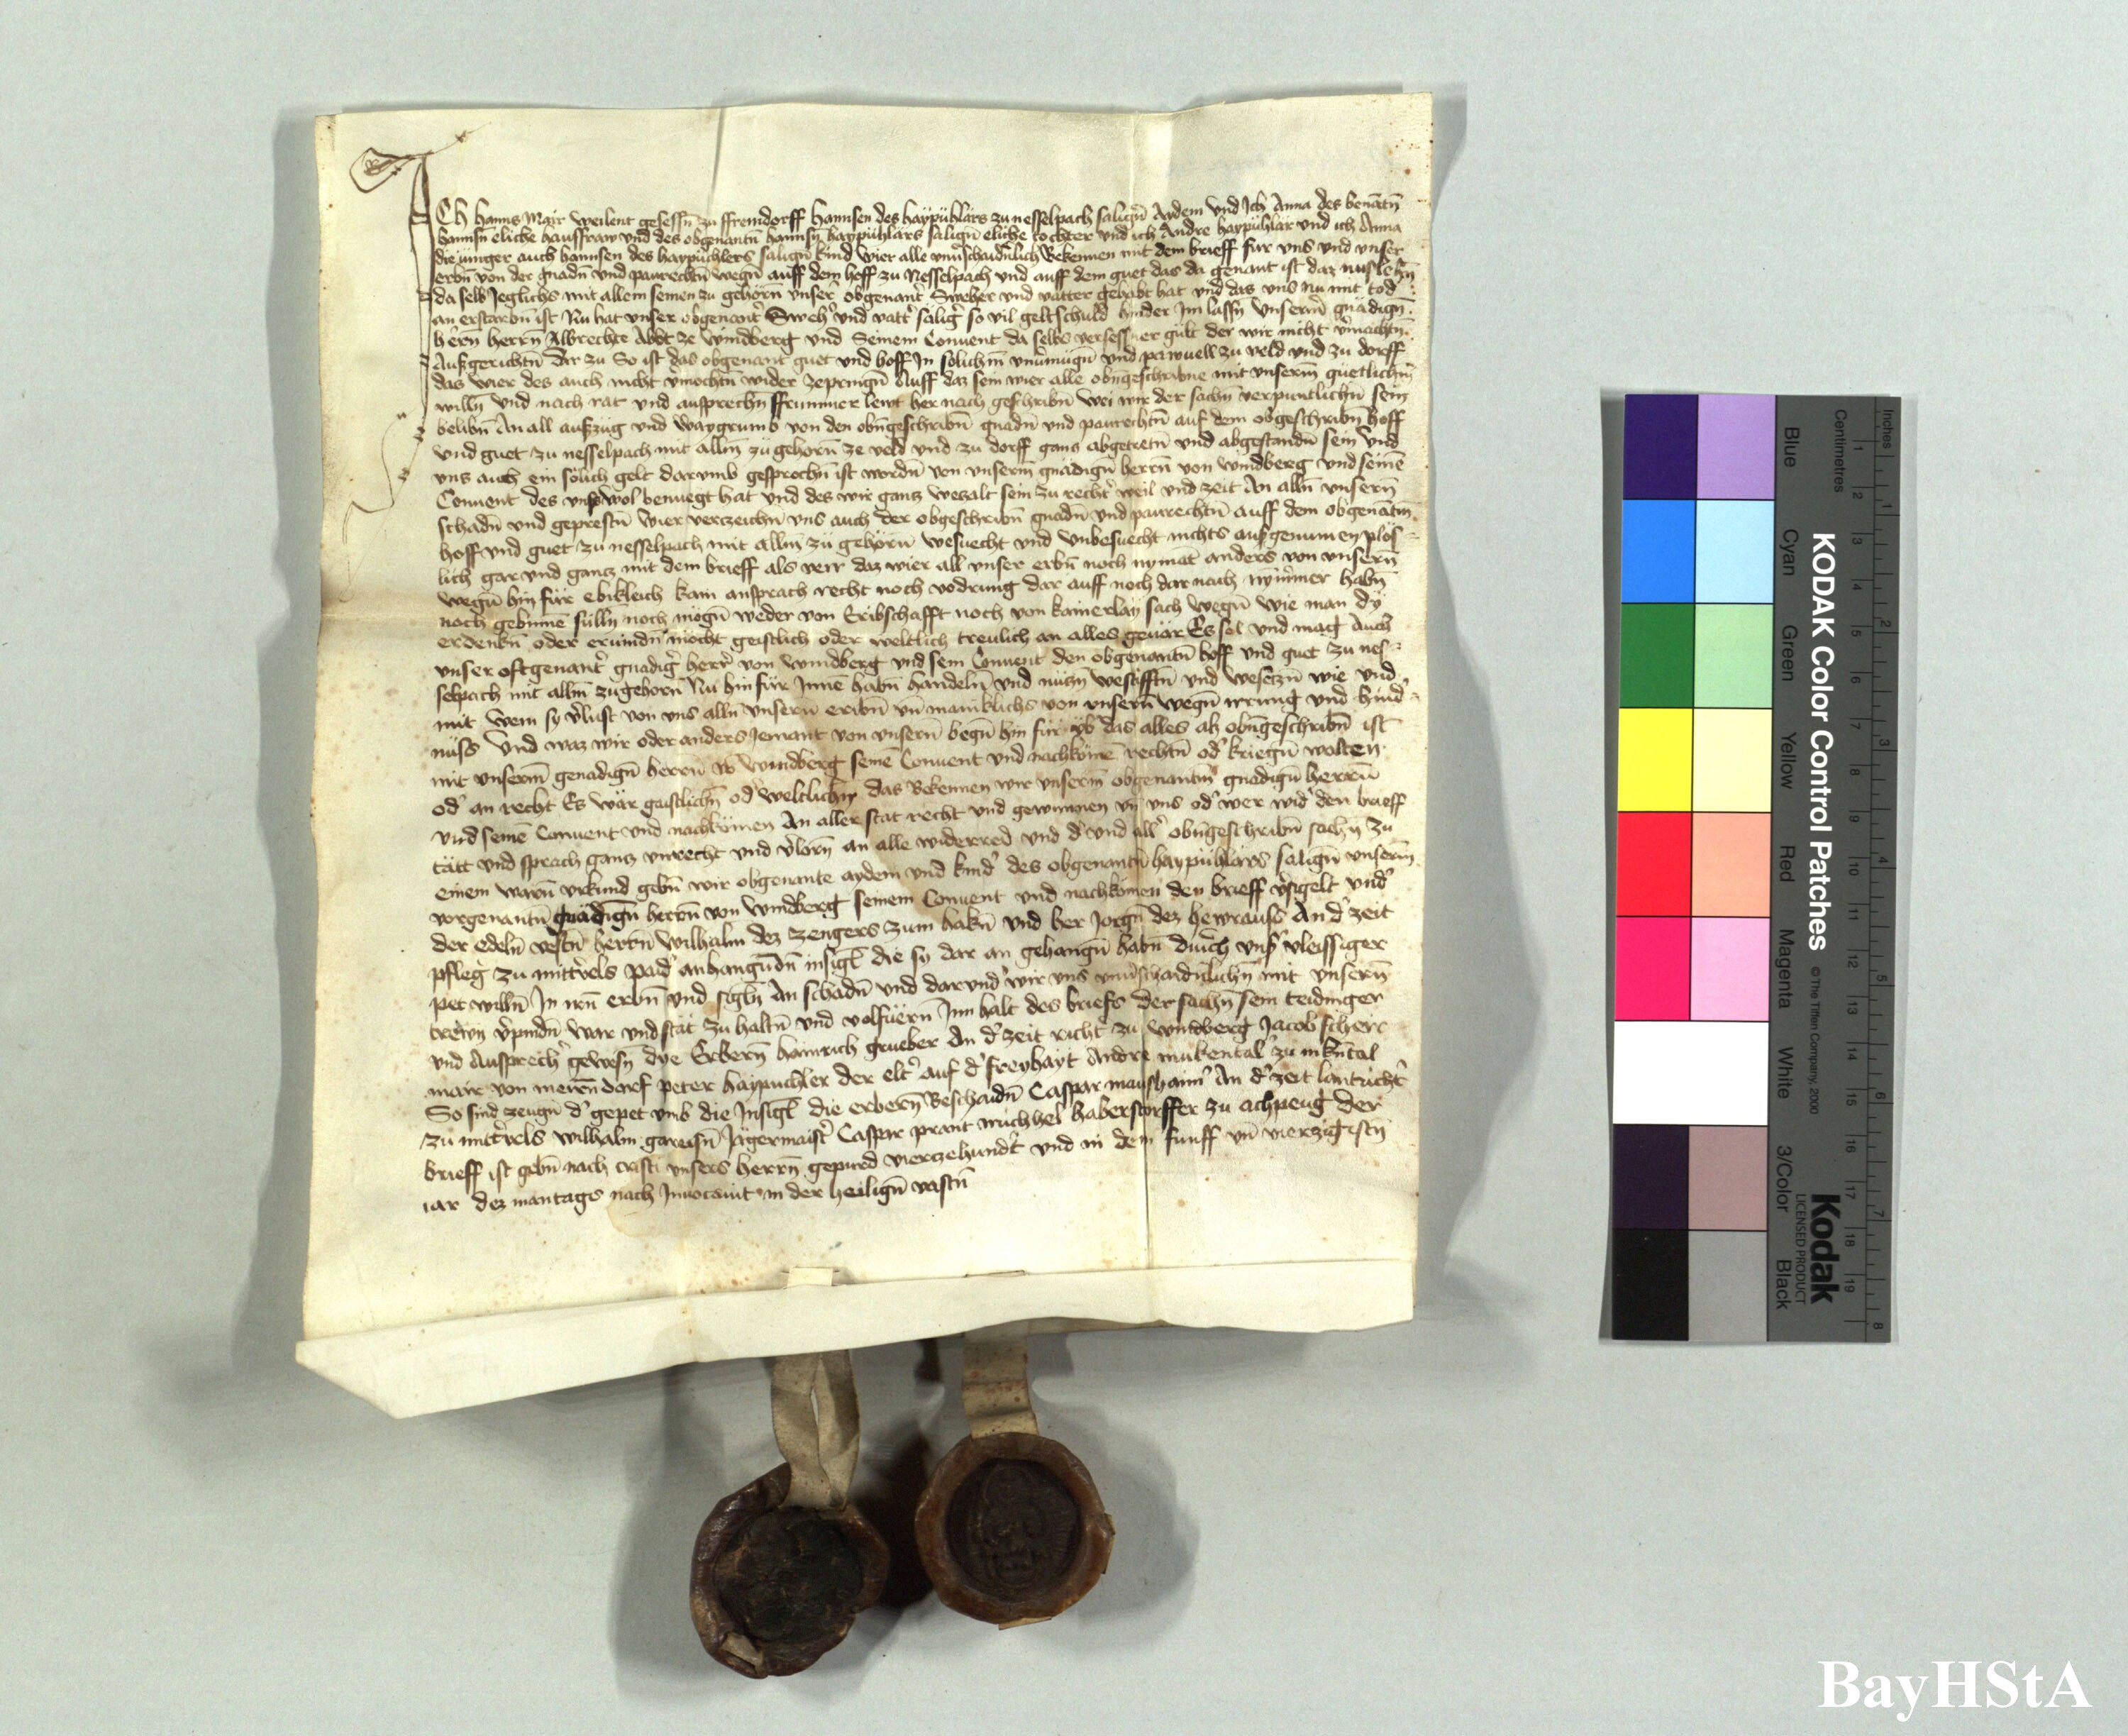 Ich Hanns Mair weilent gesessn̄ zu ffremdorff Hannsen des haypühlärs zu nesselpach salign̄ Aydem Und Ich Anna des benātn̄
hannsn̄ eliche hausffraw und des obgenantn̄ hannsn̄ haypühlärs salign̄ eliche tochter und ich Andre haypühlär und ich Anna
die iunger auch hannsen des haypüchlers salign̄ kind Wier alle unu͛schaidn̄lich Bekennen mit dem brieff für uns und unser
erbn̄ von der gnadn̄ und paurechtn̄ wegn̄ auff dem hoff zu Nesselpach und auff dem guet das da genant ist daz
da selb Jeglichs mit allem seinen zu gehörn̄ unser͛ obgenant͛ Sweher und vatter gehabt hat und das uns nu mit tod
an erstarbn̄ ist Nu hat unser obgenant͛ Sweh͛ und vatt͛ sälig͛ so vil geltschuld hinder Im lassn̄ Unserm̄ gnädign̄
hern̄ herrn̄ Albrechte Abbt ze Windberg und Seinem Convent da selbs versessner gült der wir nicht v͛machtn̄
Aufzgerichtn̄ Dar zu So ist das obgenant guet und hoff In solichm̄ unu͛mügn̄ und pawuell zu veld und zu dorff
das wier des auch nicht v͛mochtn̄ wider zepringn̄ Auff daz sein wier alle obn̄geschribne mit unserm̄ guetlichm̄
willn̄ und nach rat und ausprechn̄ ffrummer lewt her nach geschribn̄ Wei wir der sachn̄ verpuntlichn̄ sein
belibn̄ An all aufzug und Waygrumb von den obn̄geschribn̄ gnadn̄ und paurechtn̄ auf dem obgeschribn̄ hoff
und guet zu nesselpach mit allm̄ zugehorn̄ ze veld und zu dorff gans abgetretn̄ und abgestandn̄ sein Und
uns auch ein sölich gelt darumb gesprochn̄ ist wordn̄ von unserm̄ gnädign̄ herrn̄ von windberg und seinē
Convent des uns wol benuegt hat und des wir gantz wetzalt sein zu recht͛ weil und zeit An alln̄ unsern̄
schadn̄ und geprestn̄ Wier vertzeichn̄ uns auch der obgeschribn̄ gnadn̄ und paurechtn̄ auff dem obgenātm̄
hoff und guet zu nesselpach mit allm̄ zu gehörn̄ Wesuecht und Unbesuecht nichts aufzgenumen plos
lich gar und gantz mit dem brieff als verr daz wier all unser erbn̄ noch nymāt anders von unsern̄
wegn̄ hin für ebikleich kain ansprach recht noch vodrung dar auff noch dar nach nym̄mer habn̄
noch gebinnē sülln̄ noch mögn̄ weder von Eribschafft noch von kainerlay sach wegn̄ wie man dy
erdenkn̄ oder erfindn̄ möcht geistlich oder weltlich treulich an alles gevär Es sol und mag auch
unser oftgenant͛ gnadig͛ herr͛ von windberg und sein Convent den obgenantn̄ hoff und guet zu nes
selpach mit allm̄ zugehorn̄ Nu hin für Innē habn̄ handeln̄ und nutzn̄ westifftn̄ und wesetzn̄ wie und
mit wem sy v͛lust von uns alln̄ unsern̄ eribn̄ un̄ māniklichs von unsern̄ wegn̄ irrung und hind͛
nüss Und waz wir oder anders Jemant von unsern̄ begn̄ hin für üb͛ das alles alz obn̄geschribn̄ ist
mit unserm̄ genadign̄ herrn̄ vo windberg seinē Convent und nachkömē rechtn̄ od͛ kriegn̄ wolten
od͛ an recht Es wär gaistlichn̄ od͛ weltlichn̄ das Bekennen wir unserm̄ obgenantm̄ gnädign̄ herrn̄
und seinē Convent und nachkömen An aller stat recht und gewunnen un̄ uns od͛ wer wid͛ den brieff
tätt und sprach gantz unrecht und v͛lorn̄ an alle widerred und d͛ und all͛ obn̄geschribn̄ sachn̄ zu
einem warn̄ urkund gebn̄ wir obgenante aydem und kind͛ des obgenantn̄ haypühlärs salign̄ unserm̄
vorgenantn̄ gnädign̄ herrn̄ von windberg seinem Convent und nachkömen den brieff v͛sigelt und͛
der edeln̄ vestn̄ herrn̄ Wilhalm dez zengers zum hakn̄ und her Jorgn̄ dez hewrauss An d͛ zeit
pfleg͛ zu mitt͛vels paid͛ anhangūdn̄ insigl̄ die sy dar an gehangn̄ habn̄ durch uns͛ vleissiger
pet willn̄ In irn̄ erbn̄ und sigln̄ An schadn̄ und darund͛ wir uns unu͛schaidn̄lichn̄ mit unsern̄
trewn v͛pindn̄ war und stät zu haltn̄ und volfüern̄ Inn halt des briefs der sachn̄ sein teidinger
und Ausprech͛ gewesn̄ dye Erbern̄ hainrich grueber An d͛ zeit richt͛ zu windberg Jacob scherr
mair von merndorf peter haypuchler der elt͛ auf d͛ freyhayt Andre mukental͛ zu
So sind zeugn̄ d͛ gepet umb die Insigl̄ die erbern̄ Beschaidn̄ Caspar maushaim͛ An d͛ zeit lantricht͛
zu mitt͛vels Wilhalm gareisn̄ Jägermaist͛ Caspar prant michhel haberstorffer zu achpeug der
brieff ist gebn̄ nach cristi unsers herrn̄ gepurd viertzehundt͛ und in dem funff un̄ vierzigistn̄
iar dez mantags nach Invocavit in der heilign̄ vastn̄
Inches
Centimetres
KODAK Color Control Patches
© The Tiffen Company, 2000
Kodak
LICENSED PRODUCT
Blue
Cyan
Green
Yellow
Red
Magenta
White
3/Color
Black
1 2 3 4 5 6 7 8 9 10 11 12 13 14 15 16 17 18 19
1 2 3 4 5 6 7 8
BayHStA